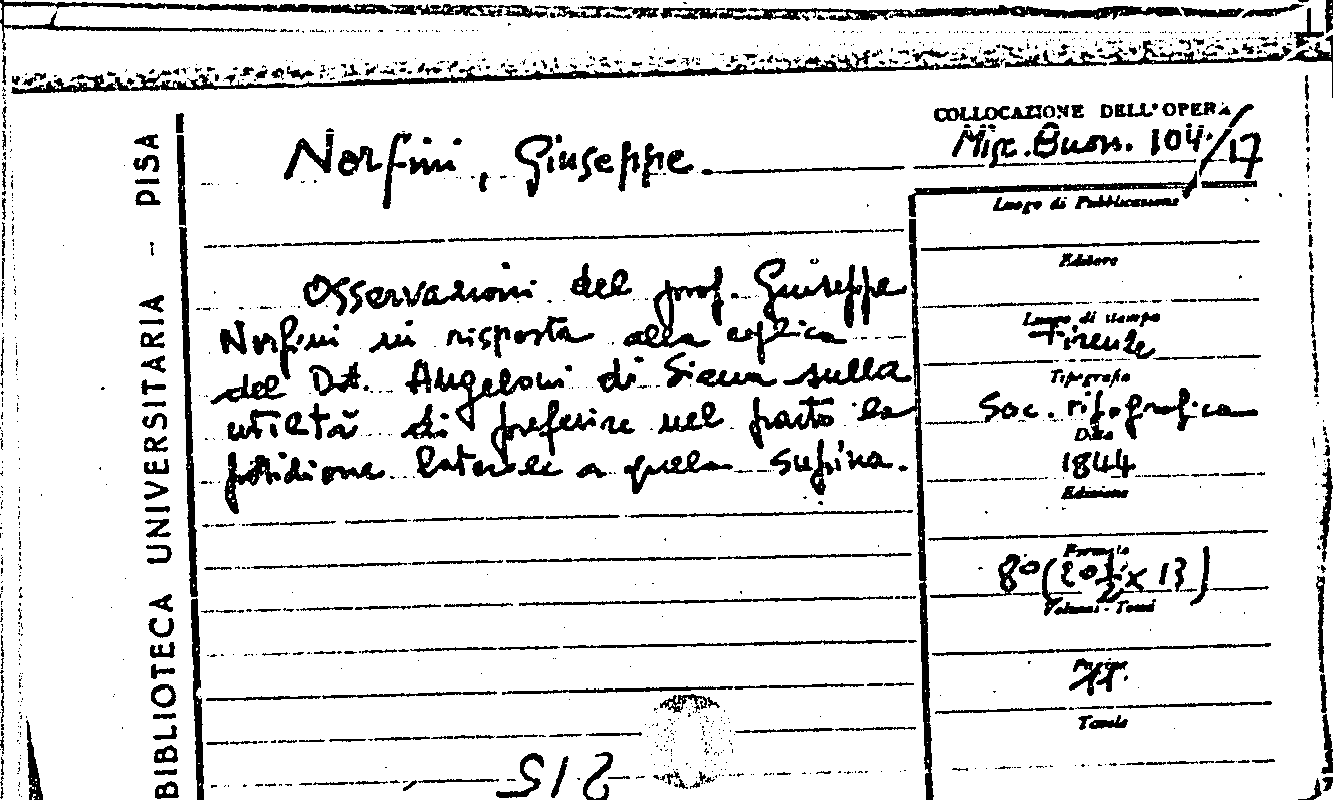 BIBLIOTECA UNIVERSITARIA - PISA
COLLOCAZIONE DELL'OPERA
Misc. Buon. 104./17
Norfini, Giuseppe.
Luogo di Pubblicazione
Editore
Osservazioni del prof. Giuseppe
Norfini in risposta alla replica
del Dot. Angeloni di Siena sulla
utiltà di preferire nel parto la
posidione laterale a quella supina.
Luogo di stampa
Firenze
Tipografia
Soc. tipografica
Data
1844
Edizione
Formato
8° (20½ x 13)
Volumi - Tomi
Pagine
Tavole